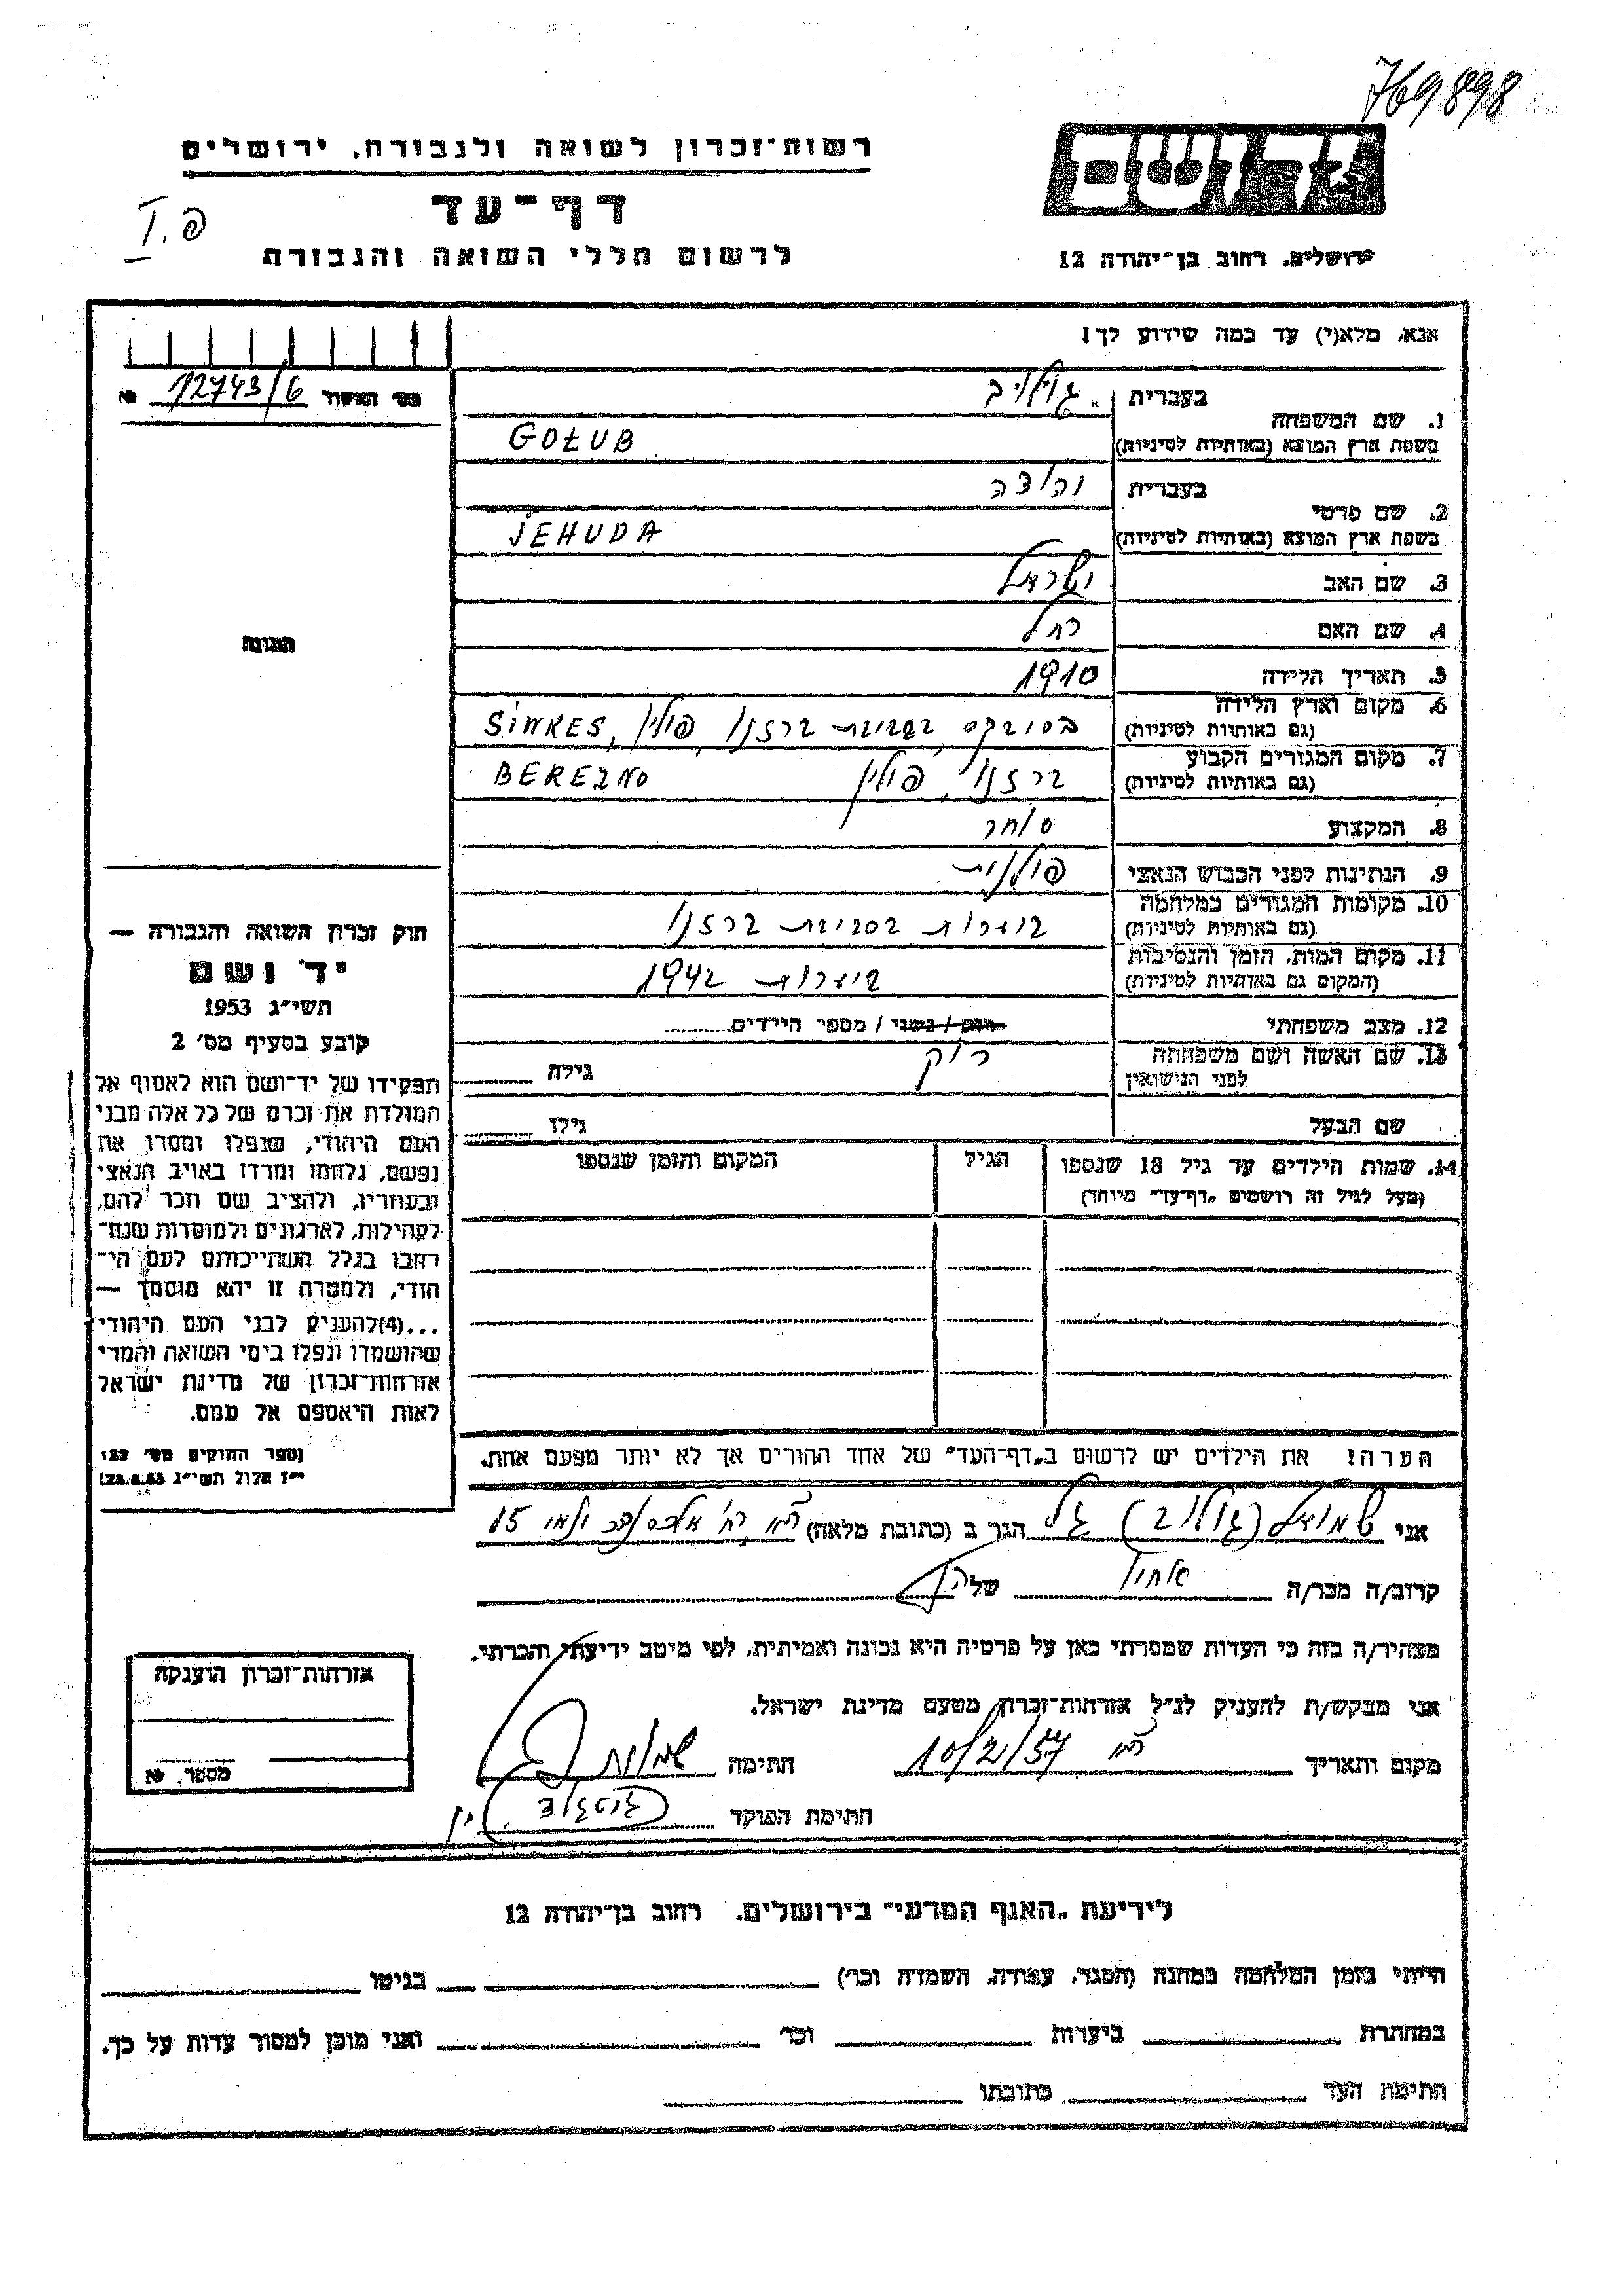 769898
רשות־זכרון לשואה ולגבורה, ירושלים
דף־עד
לרשום חללי השואה והגבורה
פ. I
יד ושם
ירושלים, רחוב בן־יהודה 12
אנא, מלא(י) עד כמה שידוע לך!
12743/6 №
1. שם המשפחה
בעברית גולוב
בשפת ארץ המוצא (באותיות לטיניות) GOŁUB
2. שם פרטי
בעברית יהודה
בשפת ארץ המוצא (באותיות לטיניות) JEHUDA
3. שם האב ישראל
4. שם האם רחל
5. תאריך הלידה 1910
6. מקום וארץ הלידה
(גם באותיות לטיניות) בסביבת ברזנו, פולין, SIWKES
7. מקום המגורים הקבוע
(גם באותיות לטיניות) ברזנו, פולין BEREZNO
8. המקצוע סוחר
9. הנתינות לפני הכבוש הנאצי פולנית
10. מקומות המגורים במלחמה
(גם באותיות לטיניות) ביערות בסביבת ברזנו
11. מקום המות, הזמן והנסיבות
(המקום גם באותיות לטיניות) ביערות 1942
12. מצב משפחתי רווק / נשוי / מספר הילדים
13. שם האשה ושם משפחתה
לפני הנישואין רווק גילה
שם הבעל גילו
14. שמות הילדים עד גיל 18 שנספו הגיל המקום והזמן שנספו
(מעל לגיל זה רושמים "דף־עד" מיוחד)
הערה! את הילדים יש לרשום ב"דף־העד" של אחד ההורים אך לא יותר מפעם אחת.
תמונה
חוק זכרון השואה והגבורה —
יד ושם
תשי"ג 1953
קובע בסעיף מס' 2
תפקידו של יד־ושם הוא לאסוף אל
המולדת את זכרם של כל אלה מבני
העם היהודי, שנפלו ומסרו את
נפשם, נלחמו ומרדו באויב הנאצי
ובעוזריו, ולהציב שם וזכר להם,
לקהילות, לארגונים ולמוסדות שנח־
רבו בגלל השתייכותם לעם הי־
הודי, ולמטרה זו יהא מוסמך —
...(4)להעניק לבני העם היהודי
שהושמדו ונפלו בימי השואה והמרי
אזרחות־זכרון של מדינת ישראל
לאות היאספם אל עמם.
(ספר החוקים מס' 132
י"ז אלול תשי"ג 28.8.53)
אני שמואל (גולוב) גל הגר ב (כתובת מלאה) 15
קרוב/ה מכר/ה אחיו של הנ"ל
מצהיר/ה בזה כי העדות שמסרתי כאן על פרטיה היא נכונה ואמיתית, לפי מיטב ידיעתי והכרתי.
אני מבקש/ת להעניק לנ"ל אזרחות־זכרון מטעם מדינת ישראל.
מקום ותאריך 10/2/57 חתימה
חתימת הפוקד
אזרחות־זכרון הוענקה
מספר №
לידיעת "האגף המדעי" בירושלים, רחוב בן־יהודה 12
הייתי בזמן המלחמה במחנה (הסגר, עבודה, השמדה וכו') בגיטו
במחתרת ביערות וכו' ואני מוכן למסור עדות על כך.
חתימת העד כתובתו